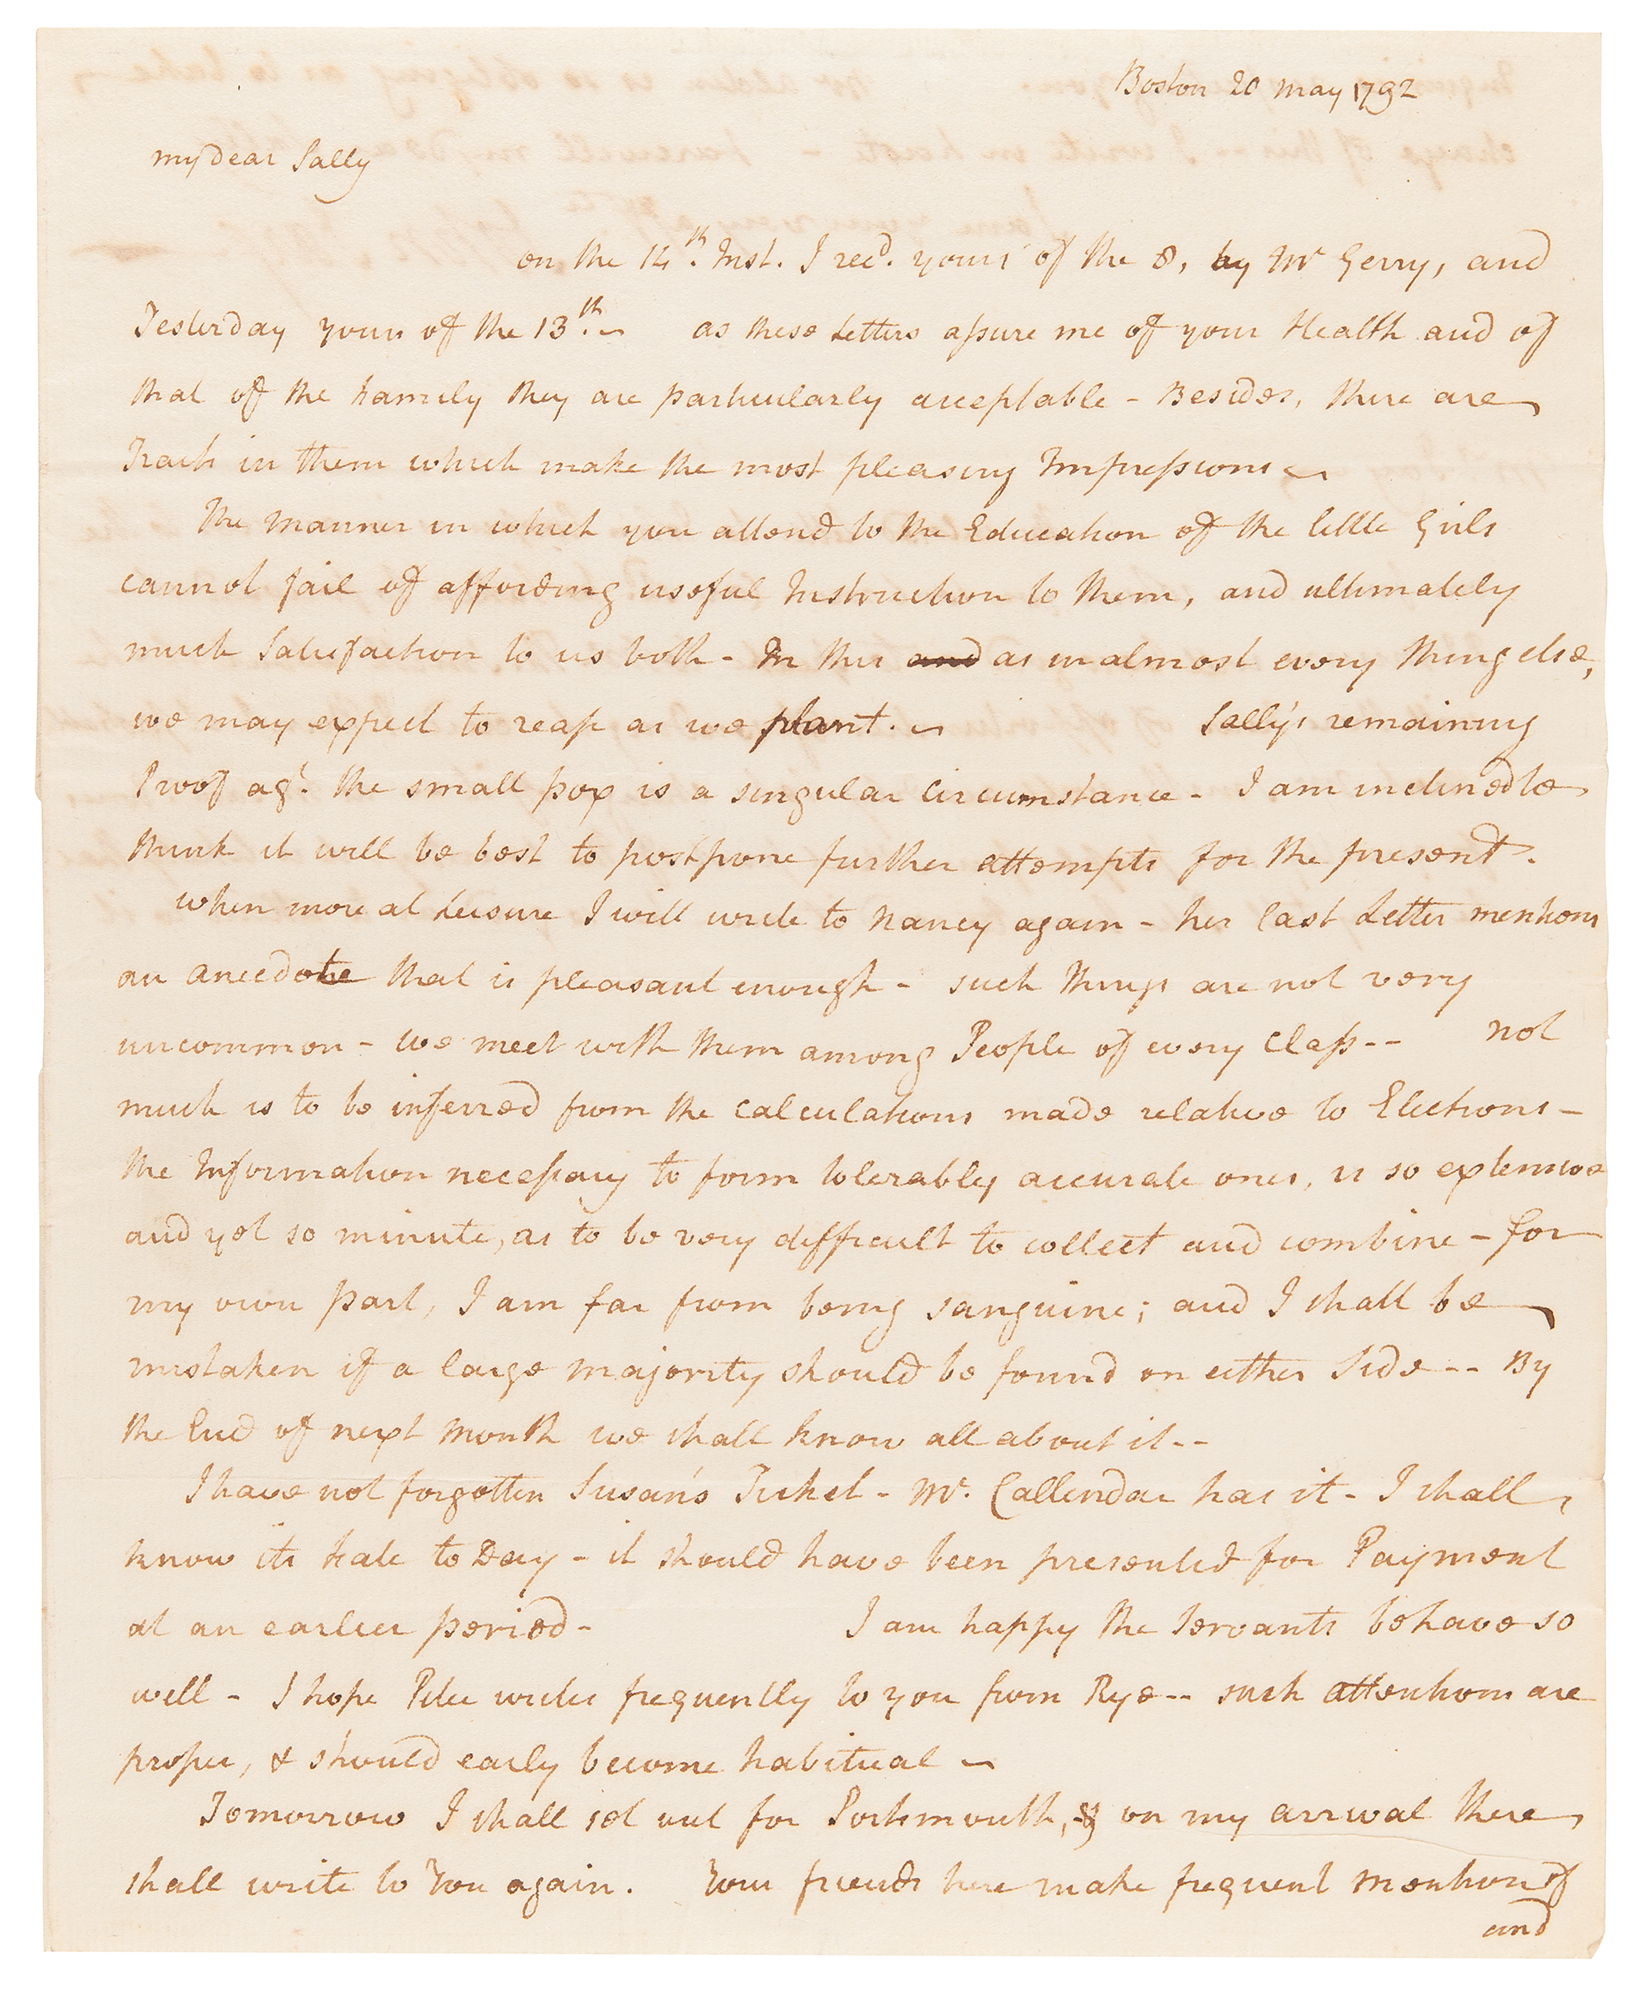 Boston 20 May 1792
my dear Sally
on the 14th. Inst. I recd. yours of the 8, by Mr Gerry, and
Yesterday yours of the 13th. ~ as these Letters assure me of your Health and of
that of the Family they are particularly acceptable - Besides, there are
Traits in them which make the most pleasing Impressions ~
The Manner in which you attend to the Education of the little Girls
cannot fail of affording useful Instruction to them, and ultimately
much Satisfaction to us both - In this and as in almost every thing else,
we may expect to reap as we plant. ~ Sally's remaining
Proof agt. the small pox is a singular Circumstance - I am inclined to
think it will be best to postpone further attempts for the present.
when more at Leisure I will write to Nancy again - her last Letter mentions
an anecdote that is pleasant enough - such things are not very
uncommon - we meet with them among People of every Class -- not
much is to be inferred from the Calculations made relative to Elections -
the Information necessary to form tolerably accurate ones, is so extensive
and yet so minute, as to be very difficult to collect and combine - for
my own part, I am far from being sanguine; and I shall be
mistaken if a large majority should be found on either Side -- By
the End of next Month we shall know all about it --
I have not forgotten Susan's Ticket - Mr. Callendar has it - I shall
know its fate to Day - it should have been presented for Payment
at an earlier period - I am happy the Servants behave so
well - I hope Peter writes frequently to you from Rye -- such attentions are
proper, & should early become habitual ~
Tomorrow I shall set out for Portsmouth, & on my arrival there
shall write to You again. Your friends here make frequent Mention of
and